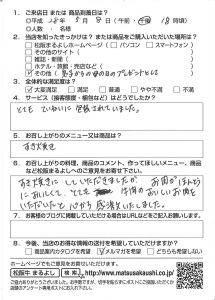 1. ご来店日 または 商品到着日は?
○平成 28年 5月 8日 (午前・午後 18時頃)
○人数 ・ 名様
2. 当店を知ったきっかけは? または商品をご購入いただいた場所は?
□松阪まるよしホームページ (□パソコン □スマートフォン)
□その他のサイト(
□雑誌・新聞(
□ホテル・旅館・売店など(
□その他( からの母の日のプレゼントとして
3. 全体的な満足度は?
□大変満足 □満足 □普通 □やや不満 □不満
4. サービス(接客態度・梱包など)はどうでしたか?
とても ていねいに 包装されていました。
5. お召し上がりのメニュー又は商品は?
すき焼き
6. お召し上がりの料理、商品のコメント、作ってほしいメニュー、商品
など松阪まるよしへのご意見をお寄せ下さい。
すき焼きに していただきましたが お肉がほんとうに
おいしくて とても
いただいて 心から 感激いたしました。
7. お客様のブログに掲載していただける場合はURLなどをご記入お願いします。
8. 今後、当店のお得な情報の送付を希望していただけますか?
□商品案内カタログを希望 □メルマガを希望 □どちらも希望しない
ホームページでもご意見をお寄せいただけます。
松阪牛 まるよし 検索 http://www.matsusakaushi.co.jp/